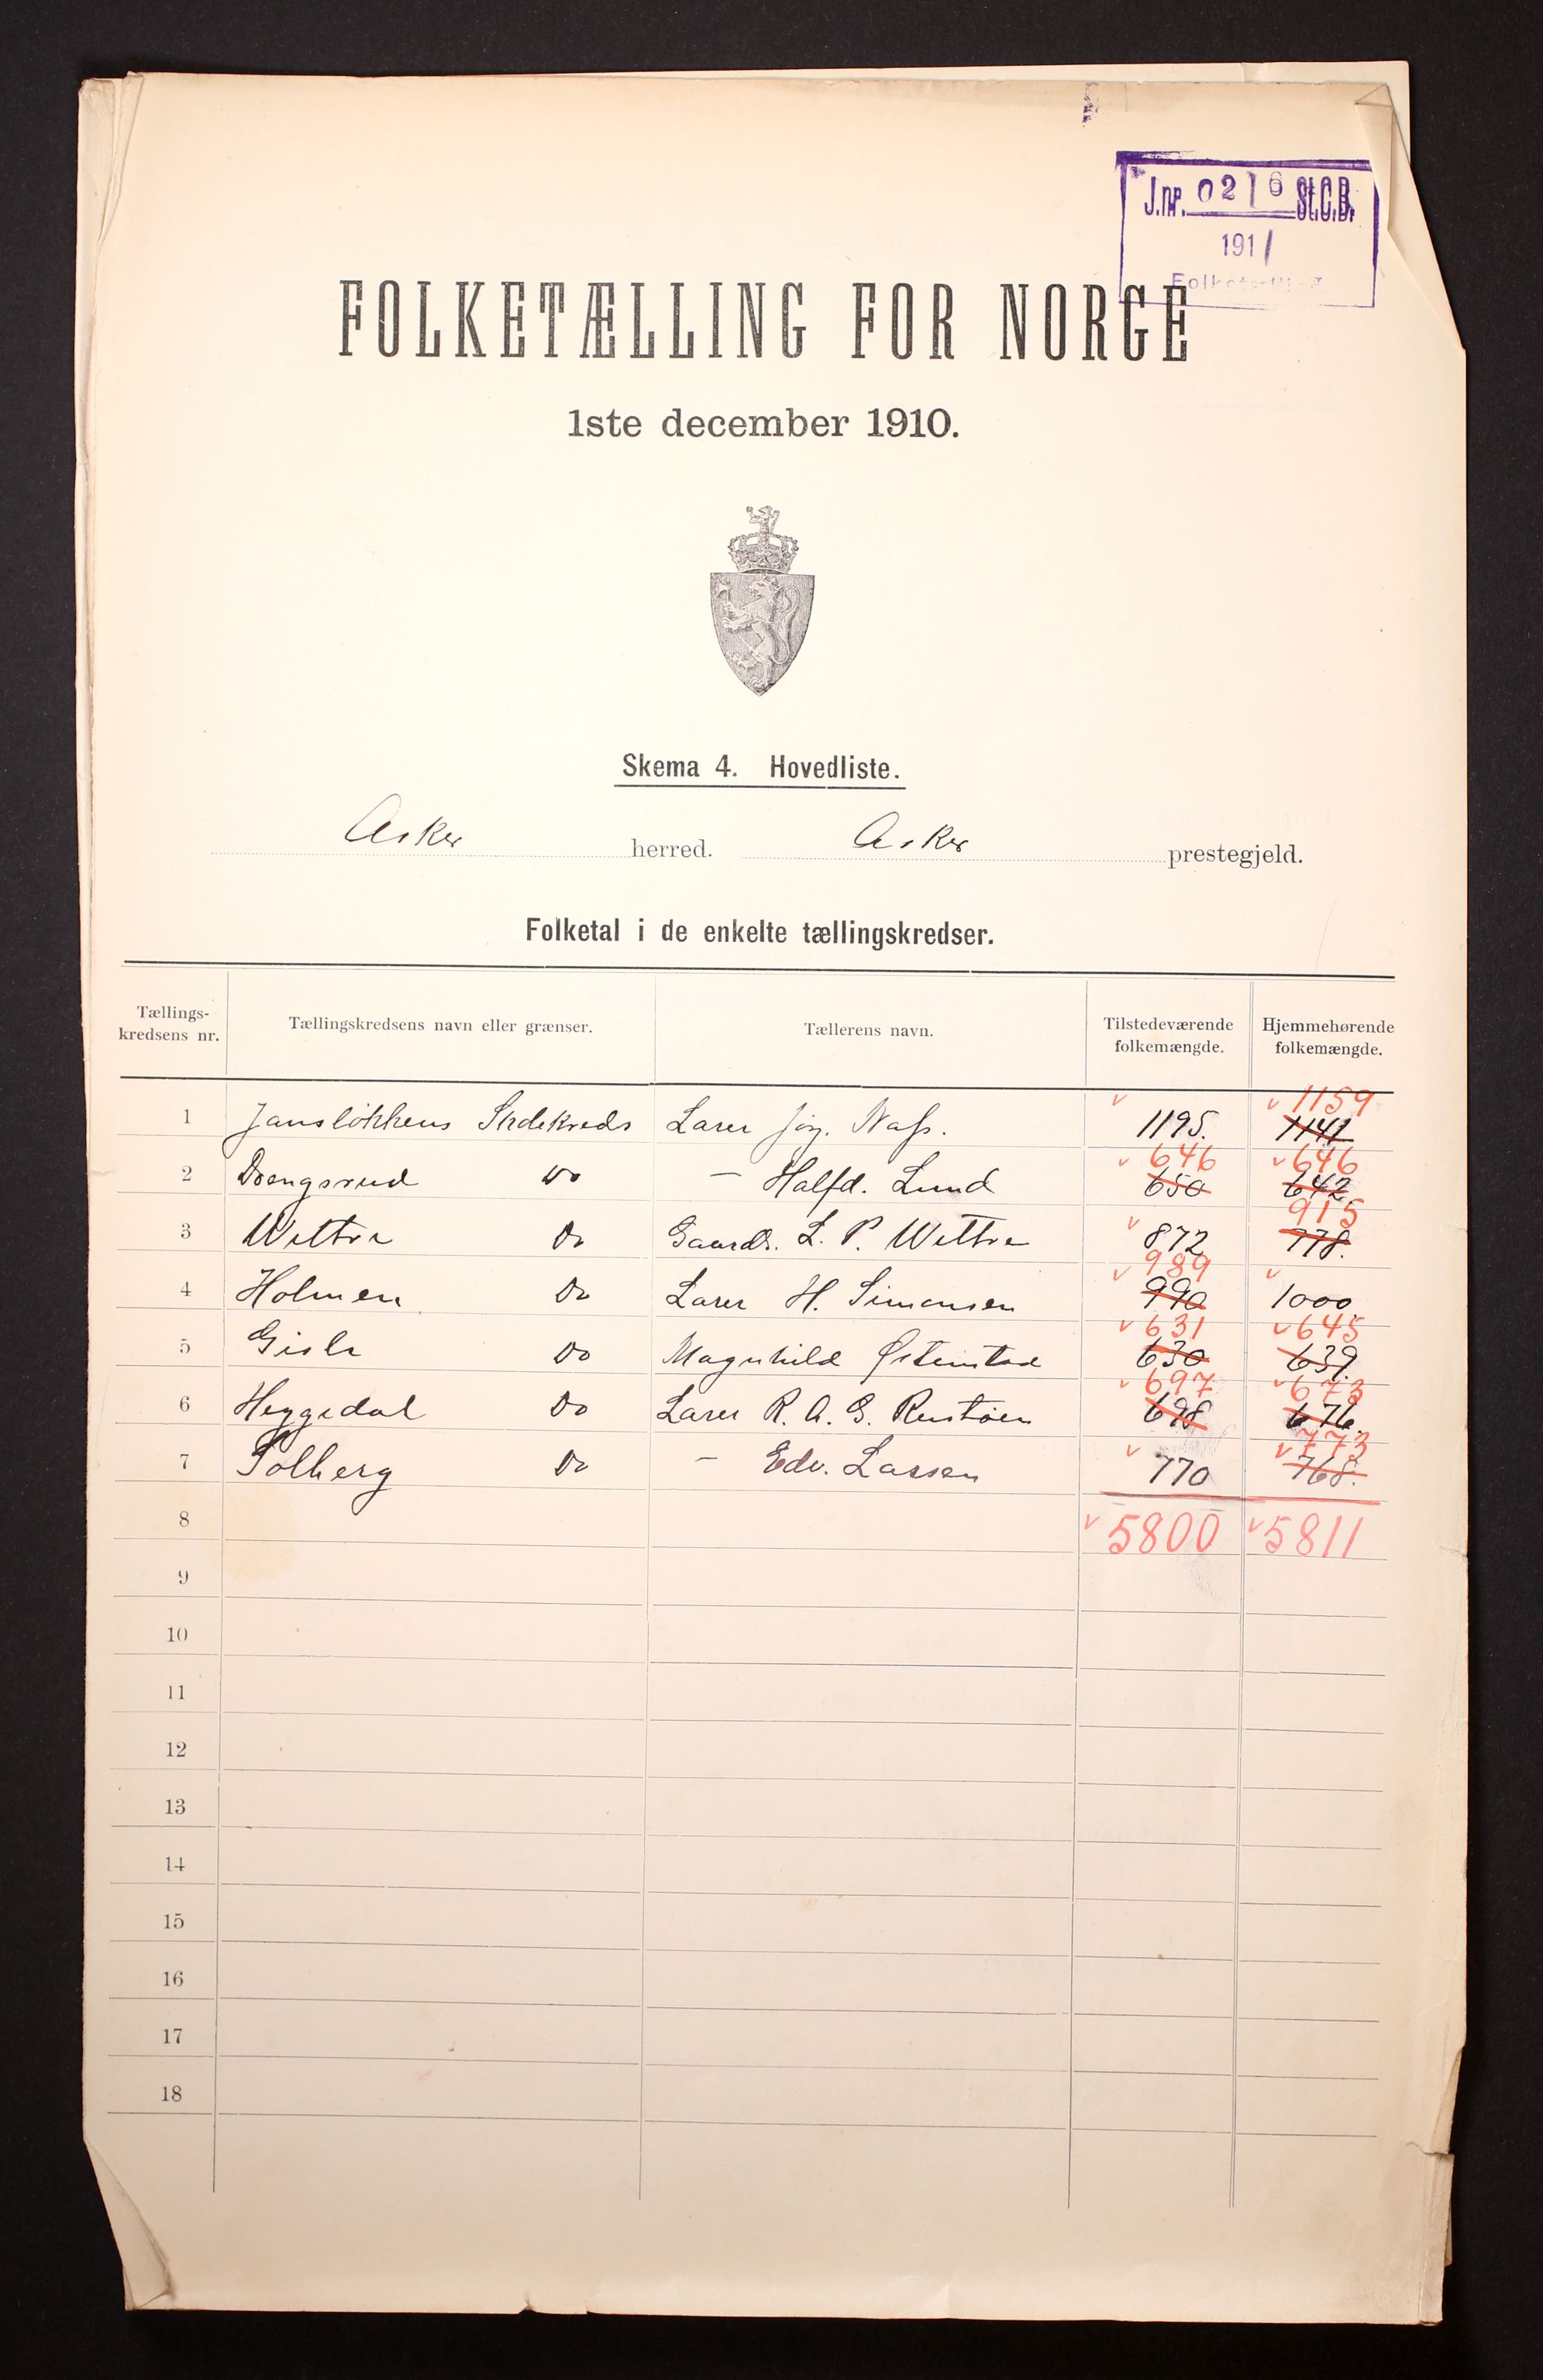 J.nr. 0216 St.C.B.
191/
FOLKETÆLLING FOR NORGE
1ste december 1910.
Skema 4. Hovedliste.
Asker herred. Asker prestegjeld.
Folketal i de enkelte tællingskredser.
Tællings-kredsens nr. Tællingskredsens navn eller grænser. Tællerens navn. Tilstedeværende folkemængde. Hjemmehørende folkemængde.
1159
1 Jansløkkens Skolekreds Lærer Jørg. Næss. 1195. 1141
646 646
2 Drengsrud Do – Halfd. Lund 650 642
915
3 Wettre Do Gaardb. L. P. Wettre 872 778.
989
4 Holmen Do Lærer H. Simonsen 990 1000
631 645
5 Gisle Do Magnhild Østenstad 630 639.
697 673
6 Heggedal Do Lærer R. A. G. Rustøen 698 676.
773
7 Solberg Do – Edv. Lassen 770 768.
8 5800 5811
9
10
11
12
13
14
15
16
17
18